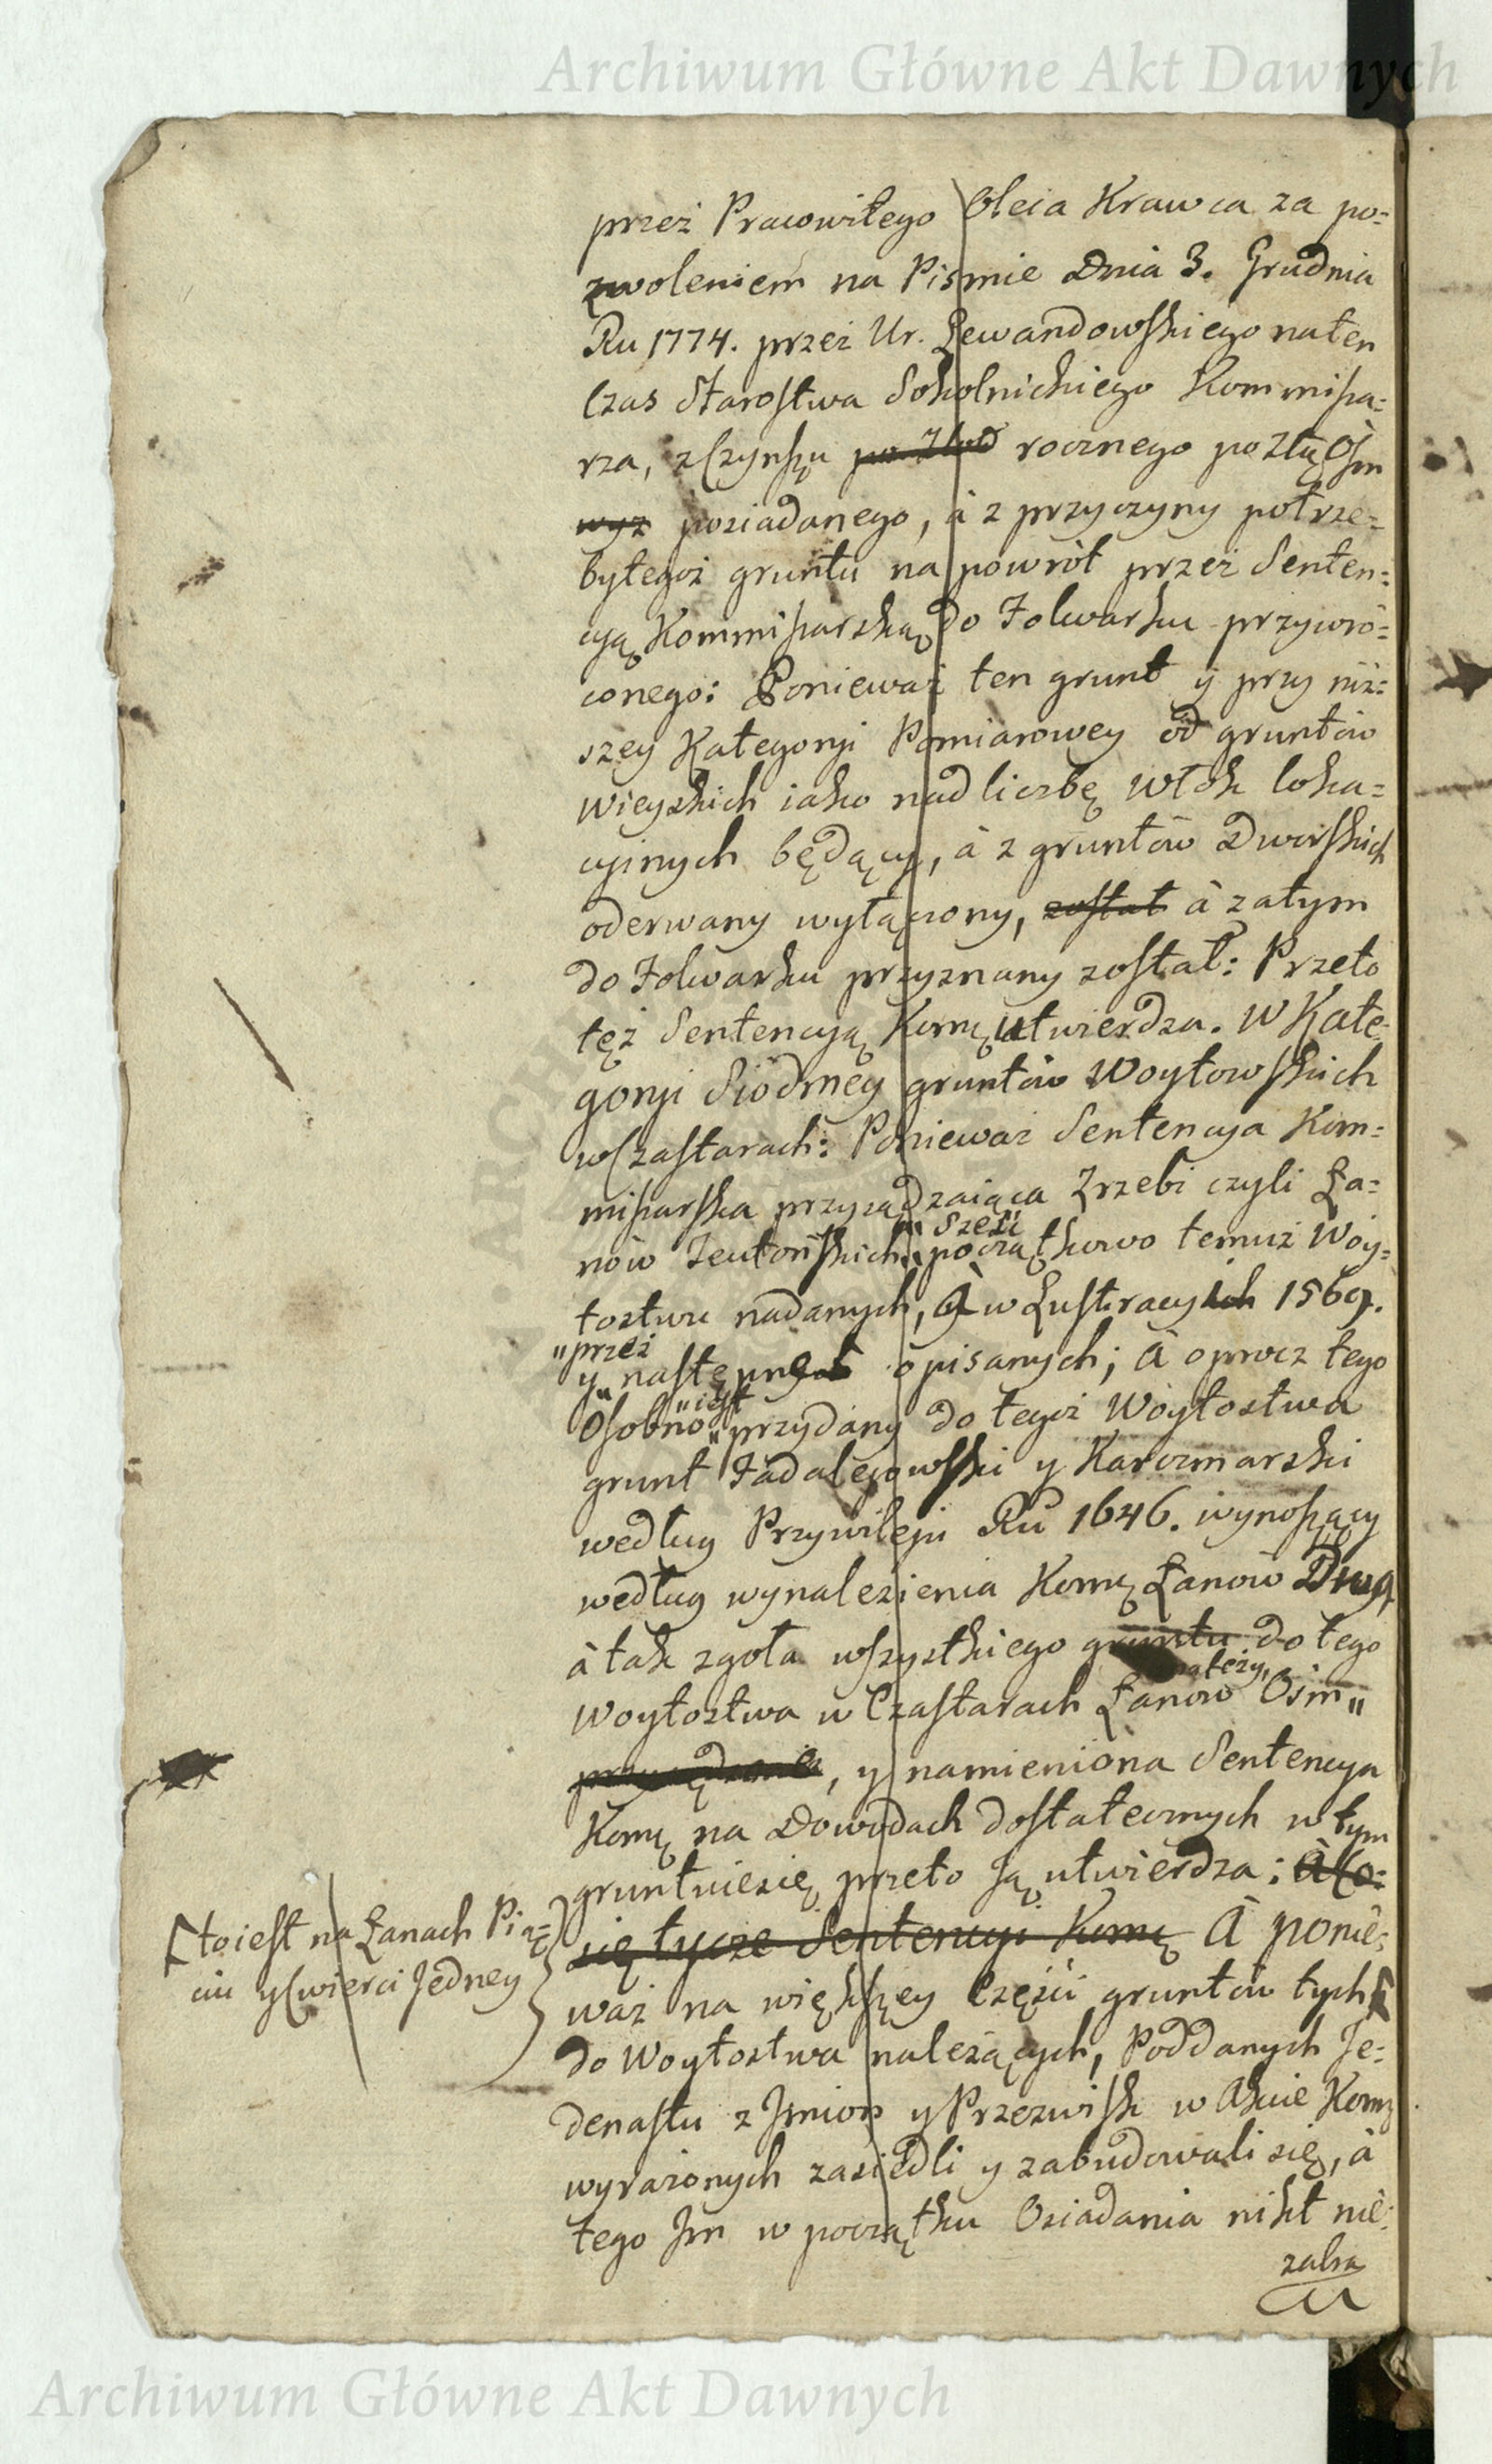 Archiwum Główne Akt Dawnych
przez Pracowitego Oleia Krawca za po=
zwoleniem na Piśmie Dnia 3. Grudnia
Ru 1774. przez Ur. Lewandowskiego naten
Czas Starostwa Sokolnickiego Kommissa=
rza, z Czynszu rocznego po Złłę Ośm
wyz posiadanego, à z przyczyny potrze=
by tegoż gruntu na powrót przez Senten=
cyą Kommissarską do Folwarku przywró=
conego: Ponieważ ten grunt y przy niż=
szey Kategoryi Pomiarowey od gruntów
Wieyskich iako nad liczbę Włók loka=
cyinych będący, à z gruntów Dworskich
oderwany wyłączony, został à zatym
do Folwarku przyznany został: Przeto
tęż Sentencyą Komę utwierdza. W Kate=
goryi Siódmey gruntów Woytowskich
w Czastarach: Ponieważ Sentencya Kom=
missarska przysądzaiąca Zrzebi czyli Ła=
"Sześć
nów Teutońskich " początkowo temuż Woy=
tostwu nadanych, à w Lustracyich 1569.
"przez
y" następne opisanych; à oprocz tego
"iest
Osobno" przydany do tegoż Woytostwa
grunt Fadalejowski y Karczmarski
według Przywileju Ru 1646. wynoszący
według wynalezienia Komę Łanów Dwa
à tak zgoła wszystkiego gruntu do tego
należy,
Woytostwa w Czastarach Łanów Ośm "
przysądzone, y namieniona Sentencya
Komę na Dowodach dostatecznych w tym
gruntuie się przeto Ją utwierdza: à Co=
się tycze Sentencyi Komę À ponie=
waż na większey Części gruntów tych
[to iest na Łanach Pię=
ciu y Cwierci Jedney
do Woytostwa należących, Poddanych Je=
denastu z Jmion y Przezwisk w Akcie Komę
wyrażonych zasiedli y zabudowali się, à
tego Jm w początku Osiadania nikt nie=
zabra
Archiwum Główne Akt Dawnych